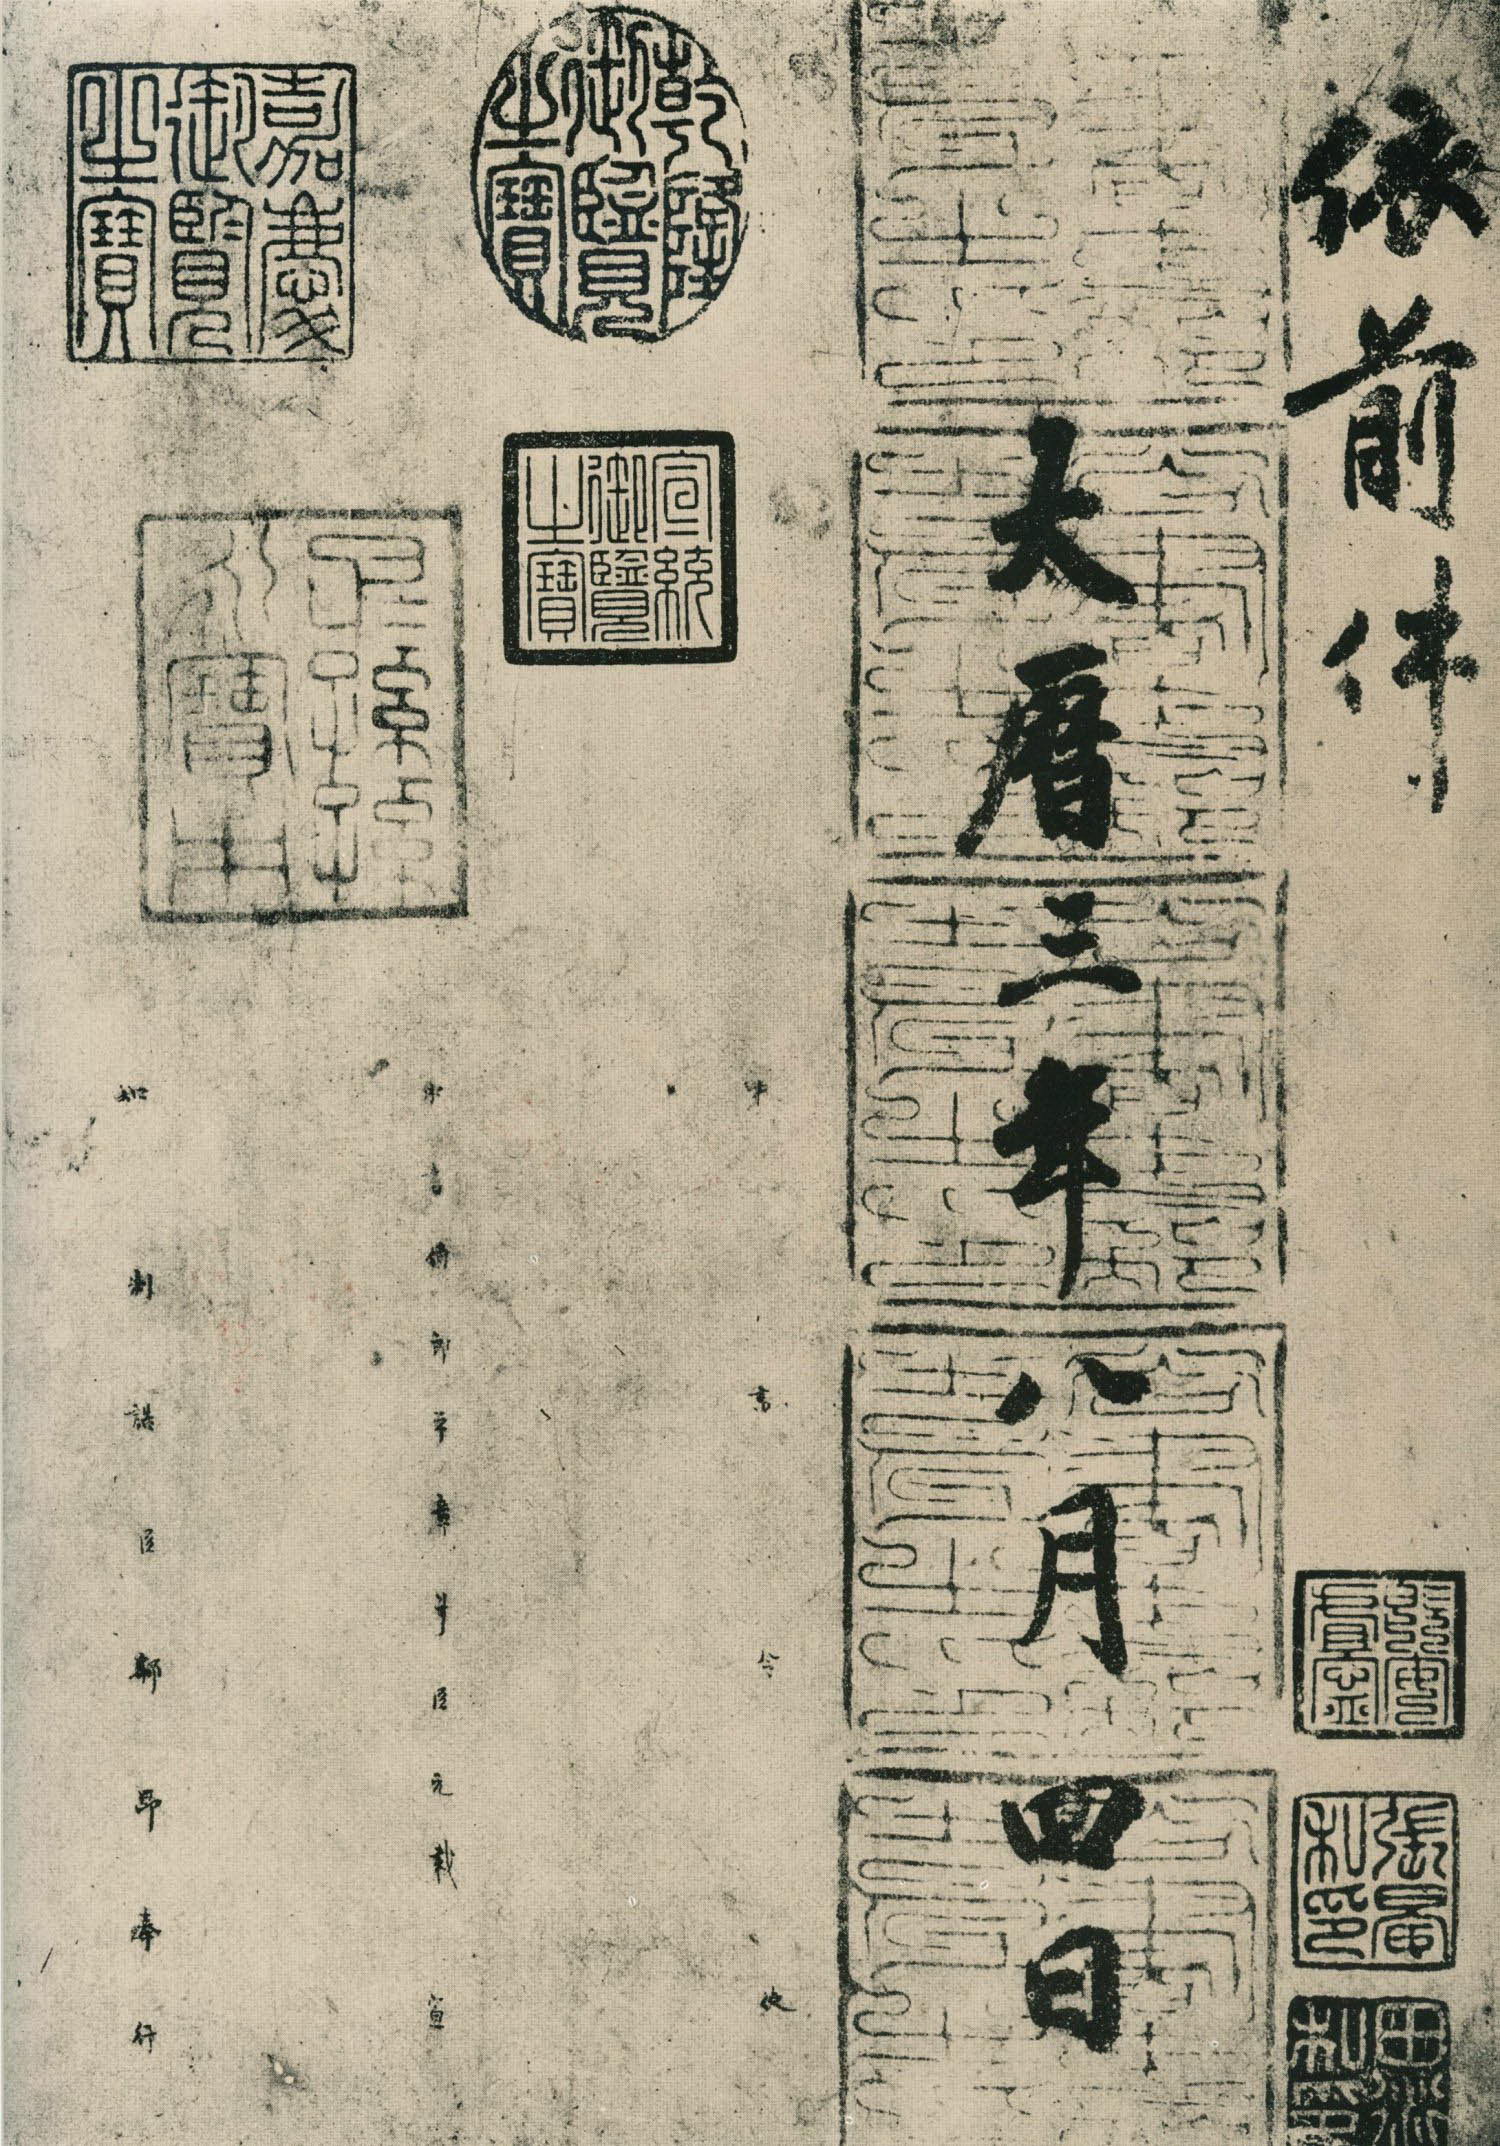 依前件
大曆三年八月四日
中書令使
中書侍郎平章事臣元載宣
知制誥臣郗昂奉行
乾隆御覽之寶
嘉慶御覽之寶
宣統御覽之寶
張晏私印